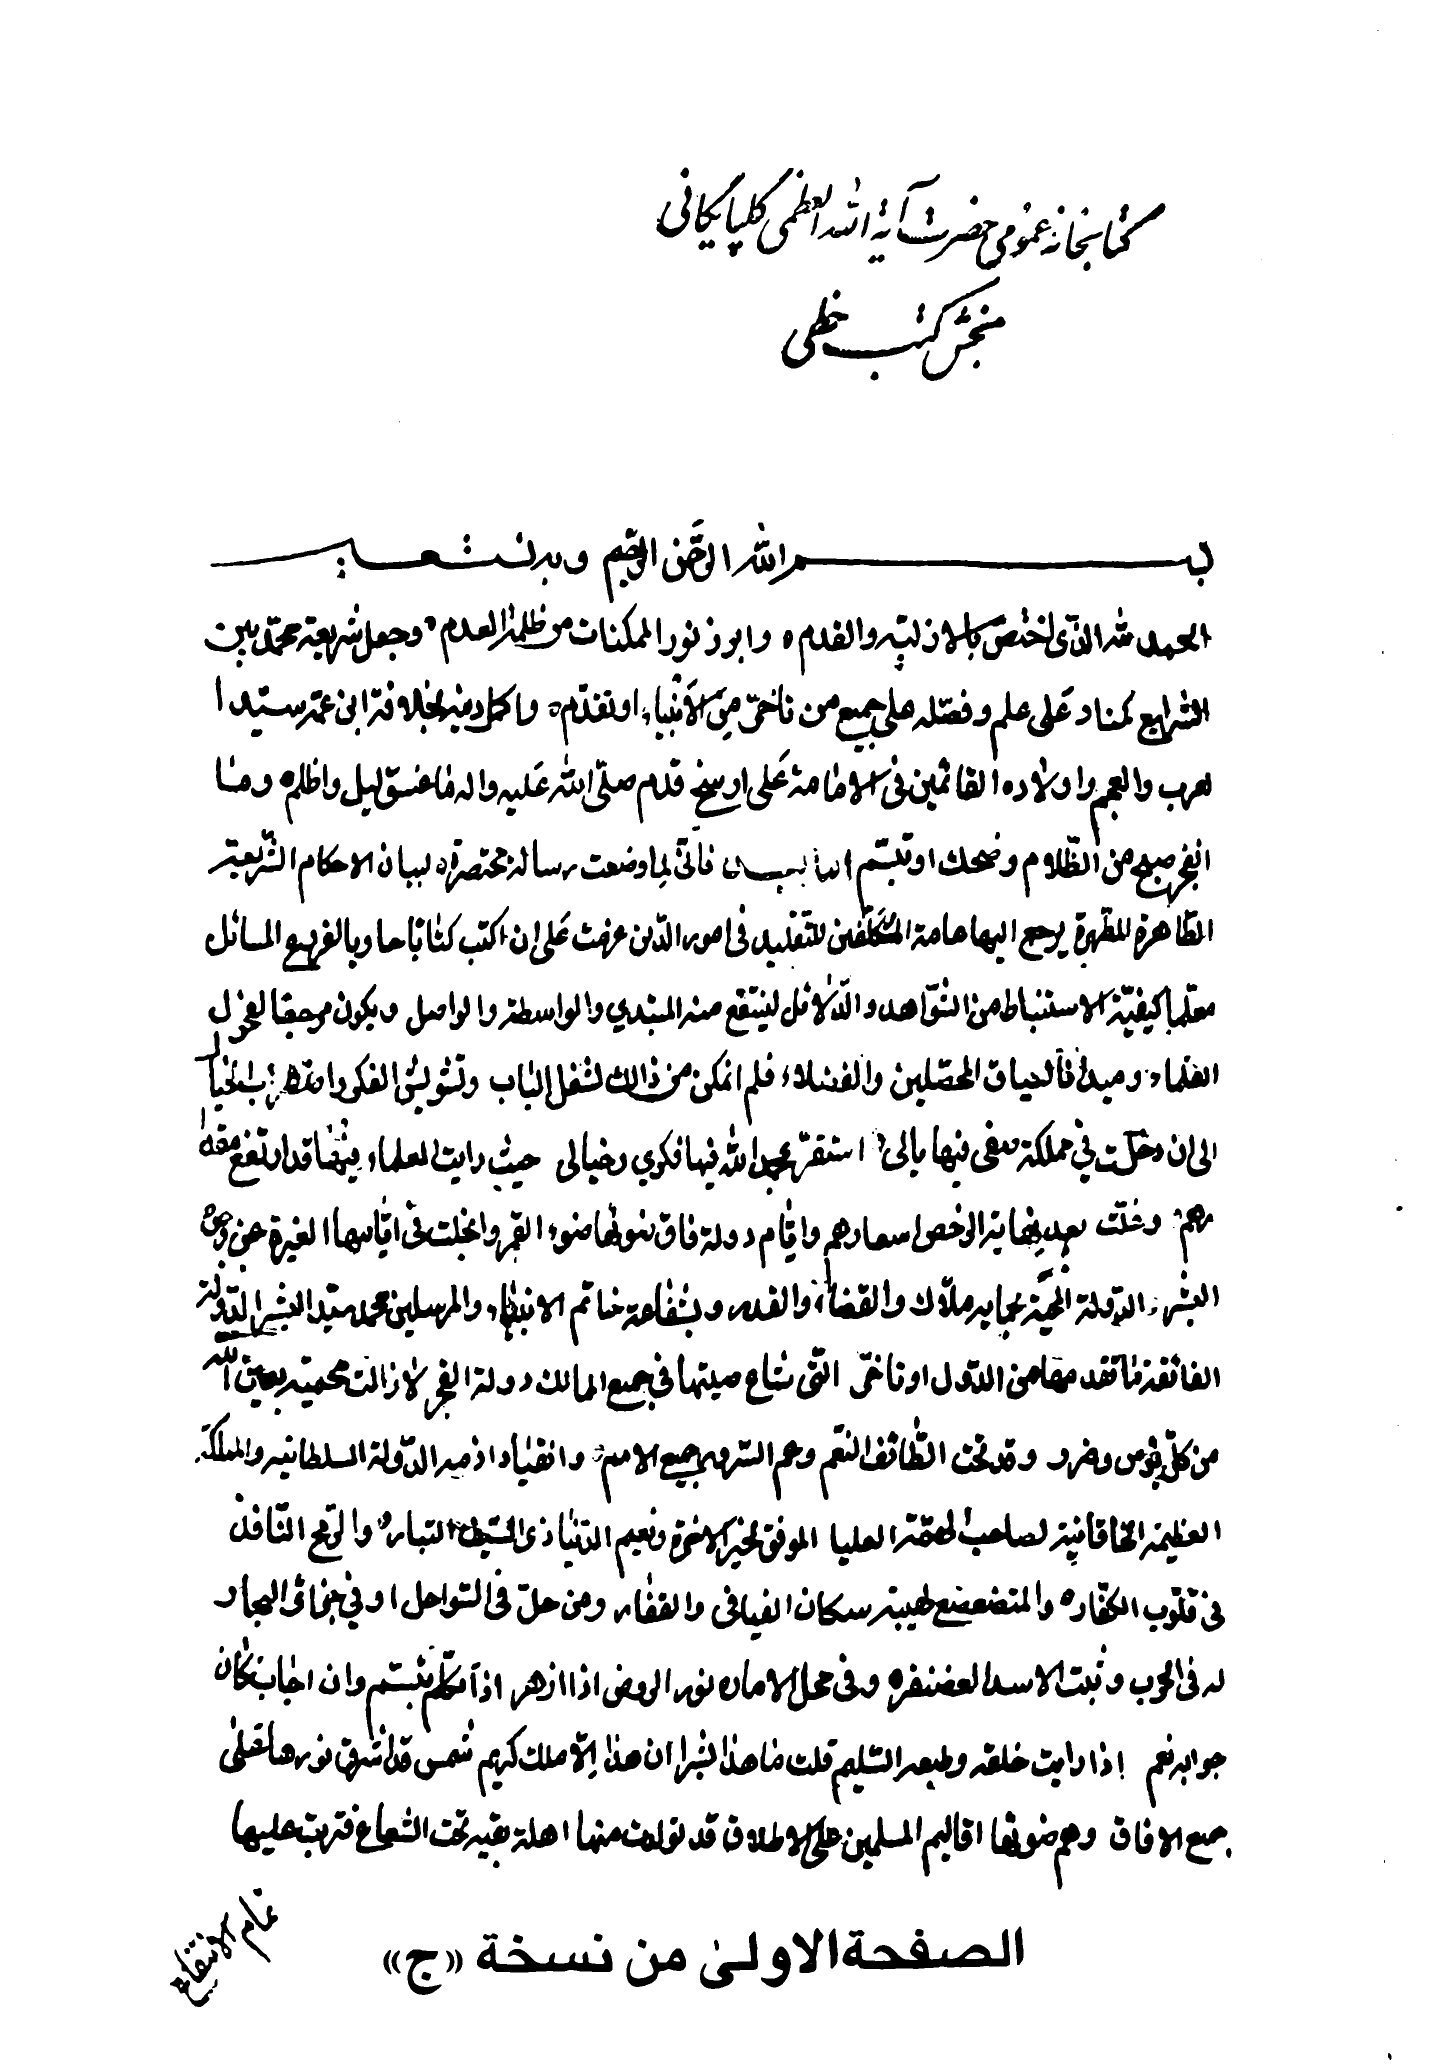 كتابخانه عمومى حضرت آية الله العظمى گلپايگانى
بخش كتب خطى
بسم الله الرحمن الرحيم وبه نستعين
الحمد لله الذى اختص بالازلية والقدم وابرز نور الممكنات من ظلمة العدم وجعل شريعة محمد بين
الشرايع كمنار على علم وفضله على جميع من تاخر من الانبياء او تقدم واكمل دينه بخلافة ابن عمه سيد ا
لعرب والعجم واولاده القائمين فى الامامة على ارسخ قدم صلى الله عليه واله ما غسق ليل واظلم وما
انفجر صبح من الظلام وضحك او تبسم اما بعد فانى لما وضعت رسالة مختصرة لبيان الاحكام الشرعية
الطاهرة المطهرة يرجع اليها عامة المكلفين للتقليد فى امور الدين عزمت على ان اكتب كتابا حاويا لفروع المسائل
معلما كيفية الاستنباط من الشواهد والدلائل لينتفع منه المبتدي والواسطة والواصل ويكون مرجعا لفحول
العلماء وميدانا لسياق المحصلين والفضلاء فلم اتمكن من ذالك لشغل البال وتشويش الفكر واضطراب الخيال
الى ان دخلت في مملكة صفى فيها بالى استقر بحمد الله فيها فكري وخيالى حيث رايت العلماء فيها قد ارتفع مقدا
رهم وغلت بعد نهاية الرخص اسعارهم وايام دولة فاق ضوئها ضوء القمر وانجلت فى ايامها الغبرة عن وجوه
البشر الدولة المحمية بحماية ملاك القضاء والقدر وبشفاعة خاتم الانبياء والمرسلين محمد سيد البشر الدولة
الفائقة ما تقدمها من الدول او تاخر التى شاع صيتها في جميع الممالك دولة القجر لازالت محمية بعين الله
من كل بؤس وضرر وقد تمت اللطائف النعم وعم السرور جميع الامم وانقياد ازمة الدولة السلطانية والمملكة
العظيمة الخاقانية لصاحب الهمة العليا الموفق لخير الاخرة ونعيم الدنيا ذى السيف التبار والرمح النافذ
فى قلوب الكفار والمتضعضع لهيبته سكان الفيافى والقفار ومن حل فى السواحل او في جزائر البحار
له فى الحرب وثبت الاسد الغضنفر وفى محل الامارة نور الروض اذا ازهر اذا تكلم تبسم وان اجاب كان
جوابه نعم اذا رايت خلقه وطبعه السليم قلت ما هذا بشرا ان هذا الا ملك كريم شمس قد اشرق نورها على
جميع الافاق وعم ضوئها اقاليم المسلمين على الاطلاق قد تولدت منها اهلة بقيه تحت الشعاع فترتب عليها
تمام الانتفاع
الصفحة الاولىٰ من نسخة «ج»